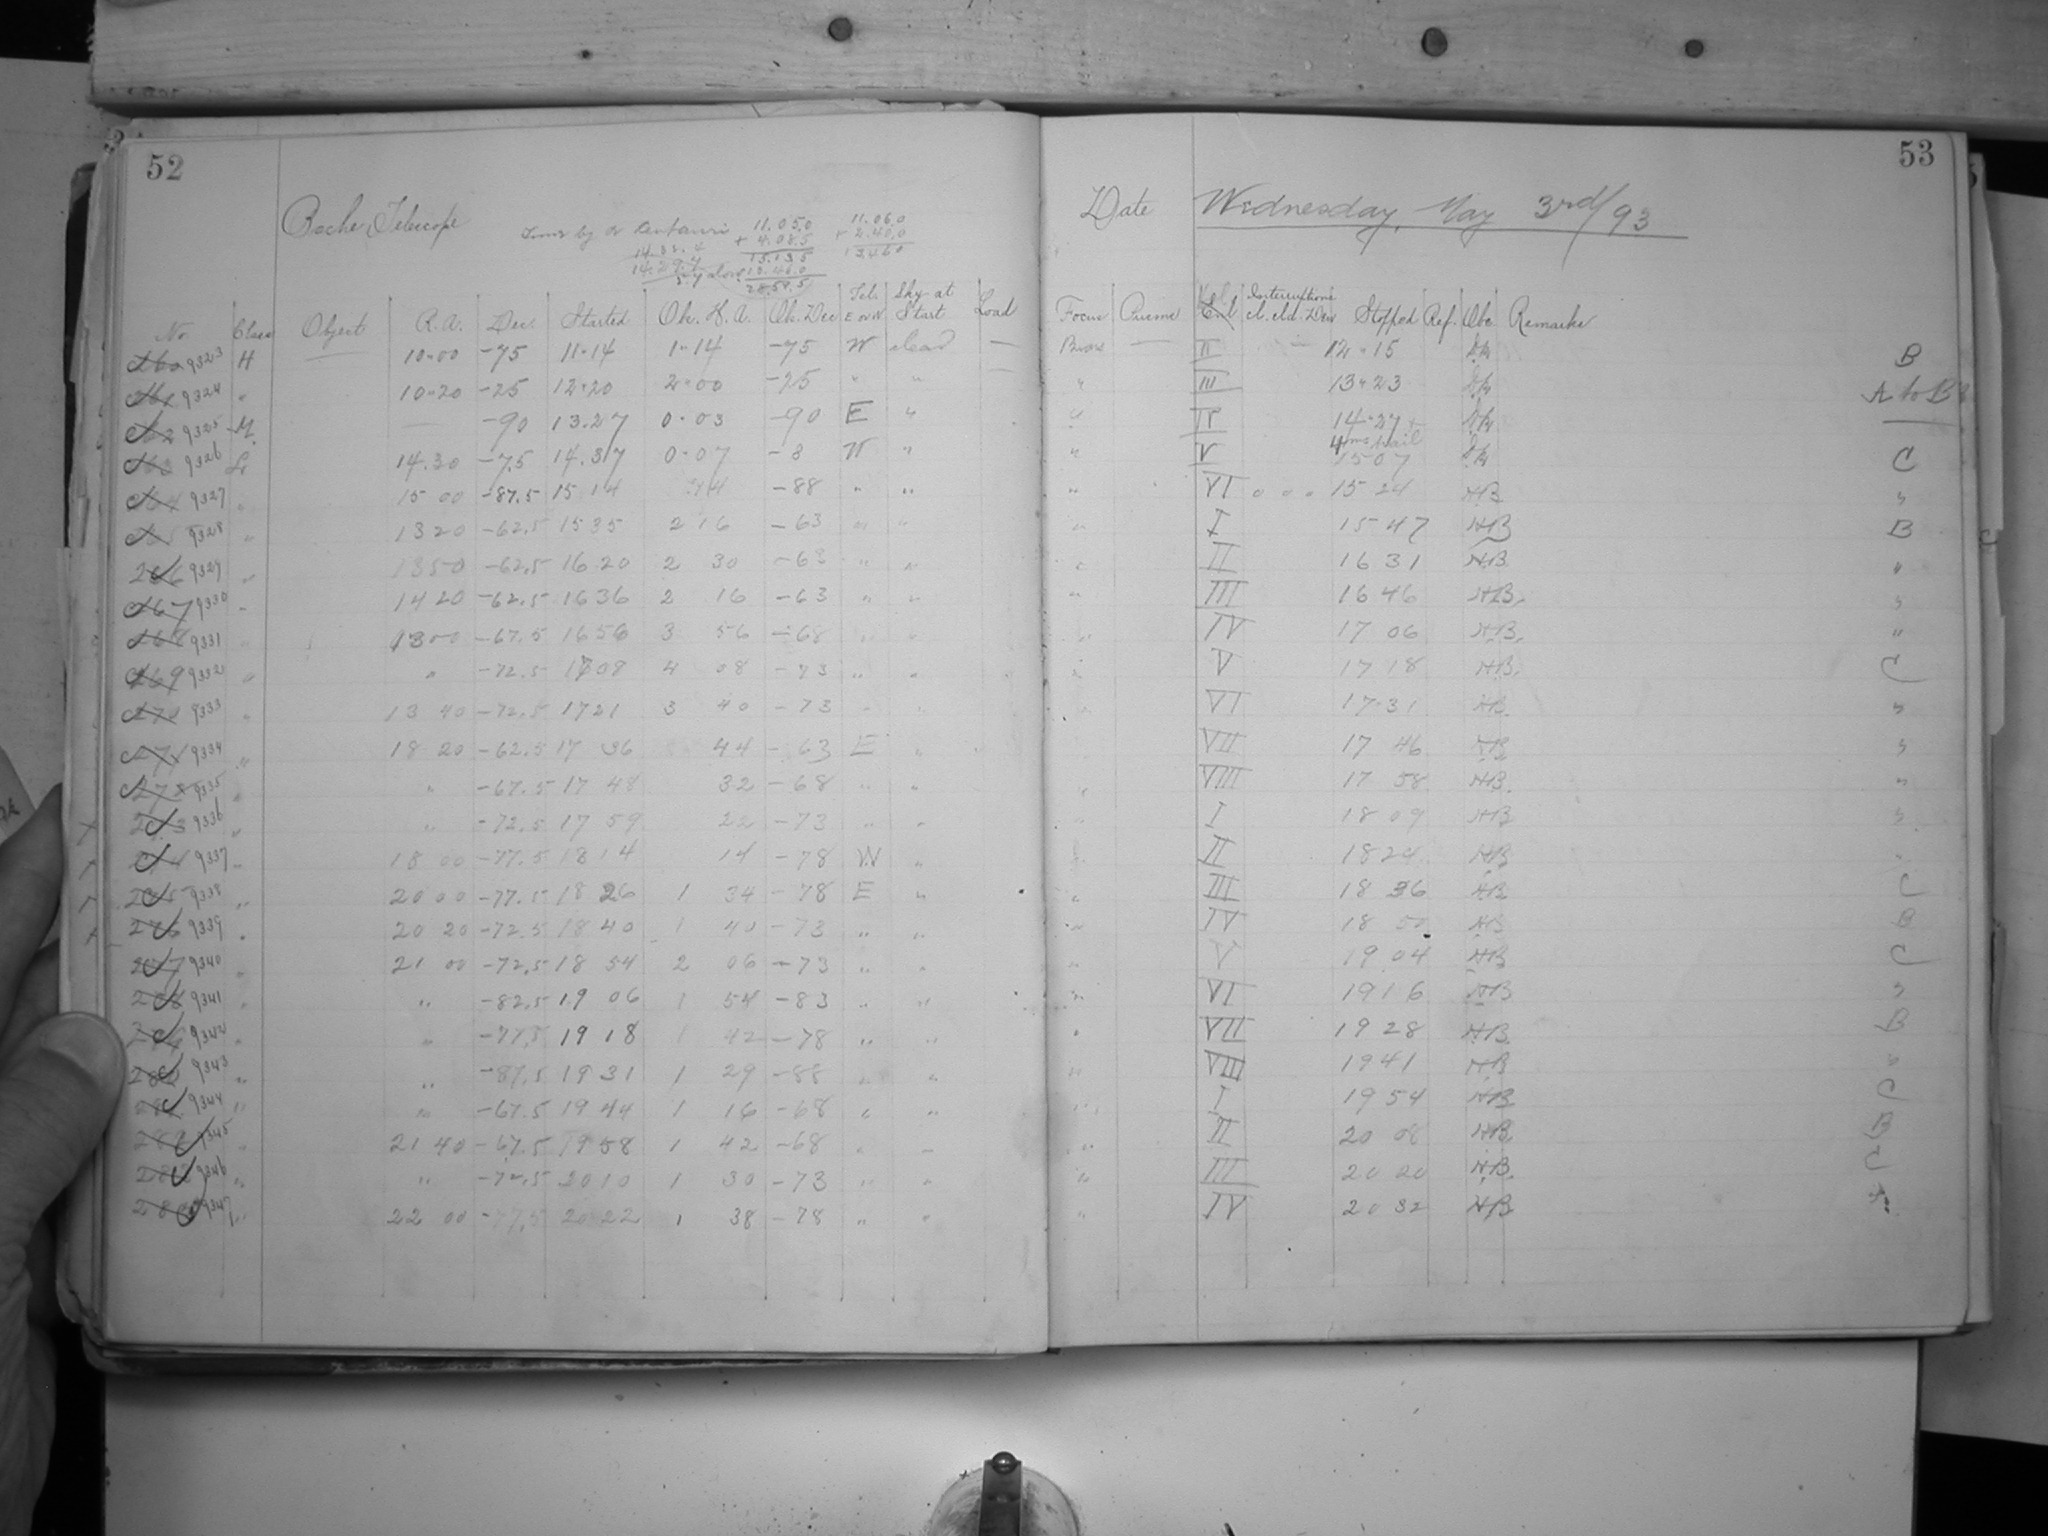 52
53
Bache Telescope
Date Wednesday, May 3rd/93
Time by α Centauri 11.05.0 11.06.0
+ 4.08.5 + 2.40.0
15.13.5 13.46.0
13.46.0
No. Class Object R.A. Dec. Started Ob. H.A. Ob. Dec Tel. E or W Sky at Start Load Focus Prisms Interruptions cl. cld. Dew Stopped Ref. Obs Remarks
9323 H — 10·00 -75 11·14 1·14 -75 W clear — — II 12·15 B
9324 " 10·20 -25 12·20 2·00 -25 " " " III 13·23 A to B
9325 M. — -90 13.27 0·03 -90 E " " IV 14·27 +
4 ms trail
9326 L 14.30 -7.5 14.37 0·07 -8 W " " V 15 07 C
9327 " 15 00 -87.5 15 14 14 -88 " " " VI 15 24 HB "
9328 " 13 20 -62.5 15 35 2 16 -63 " " " I 15 47 HB B
9329 " 13 50 -62.5 16 20 2 30 -63 " " " II 16 31 HB "
9330 " 14 20 -62.5 16 36 2 16 -63 " " " III 16 46 HB. "
9331 " 13 00 -67.5 16 56 3 56 -68 " " " IV 17 06 HB. "
9332 " " -72.5 17 08 4 08 -73 " " " V 17 18 HB. C
9333 " 13 40 -72.5 17 21 3 40 -73 " " " VI 17·31 HB. "
9334 " 18 20 -62.5 17 36 44 -63 E " VII 17 46 HB "
9335 " " -67.5 17 48 32 -68 " " " VIII 17 58 HB. "
9336 " " -72.5 17 59 22 -73 " " " I 18 09 HB "
9337 " 18 00 -77.5 18 14 14 -78 W " " II 18 24 HB "
9338 " 20 00 -77.5 18 26 1 34 -78 E " " III 18 36 HB C
9339 " 20 20 -72.5 18 40 1 40 -73 " " " IV 18 50 HB B
9340 " 21 00 -72.5 18 54 2 06 -73 " " " V 19 04 HB C
9341 " " -82.5 19 06 1 54 -83 " " " VI 19 16 HB "
9342 " " -77.5 19 18 1 42 -78 " " " VII 19 28 HB. B
9343 " " -87.5 19 31 1 29 -88 " " " VIII 19 41 HB "
9344 " " -67.5 19 44 1 16 -68 " " " I 19 54 HB C
9345 " 21 40 -67.5 19 58 1 42 -68 " " " II 20 08 HB. B
9346 " " -72.5 20 10 1 30 -73 " " " III 20 20 HB. C
9347 " 22 00 -77.5 20 22 1 38 -78 " " " IV 20 32 HB